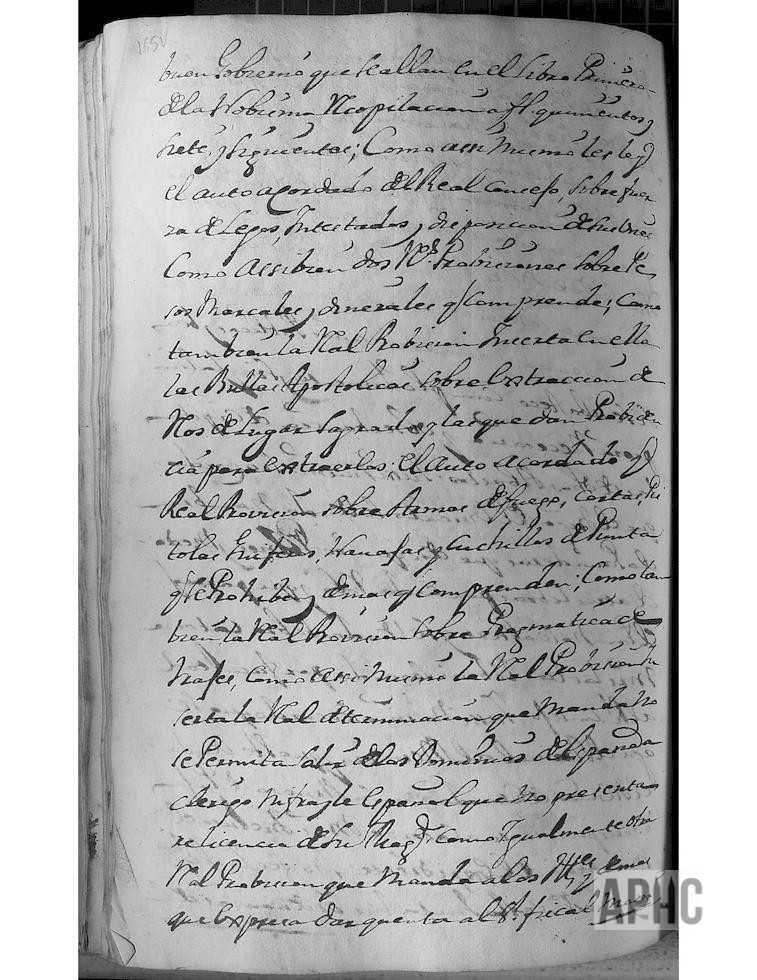 165V
buen Gobierno que se allan en el Libro Primero
de la Nobisima Recopilacion a fl quinientos y
siete, y siguientes; Como assi mismo les ley
el auto acordado del Real Concejo, sobre fuer
za de Legos, Intestados, y disposicion de sus vies
Como assi bien dos Rs. Probisiones sobre Pe
sos Marcales, y dinerales q Comprende; Como
tambien la Real Probision Inserta en ella
las Bullas Apostolicas sobre extraccion de
Reos de Lugar Sagrado, y las que dan Probiden
cia para extraerlos; el auto acordado y
Real Provision sobre Armas de fuego, Cortas, Pis
tolas, Navajas y Cuchillos de Punta
q se Prohibe, y demas q Comprenden; Como tam
bien la Real Provision sobre Pragmatica de
trajes, Como assi mismo la Real Probision in
serta la Real determinacion que manda no
se Permita salir de los Dominios de España a
clerigo ni frayle Español que no presenta
re licencia de su Magd. Como Igualmente otra
Real Probision que manda a los y demas
que expresa dar quenta al Sr. fiscal
APHC